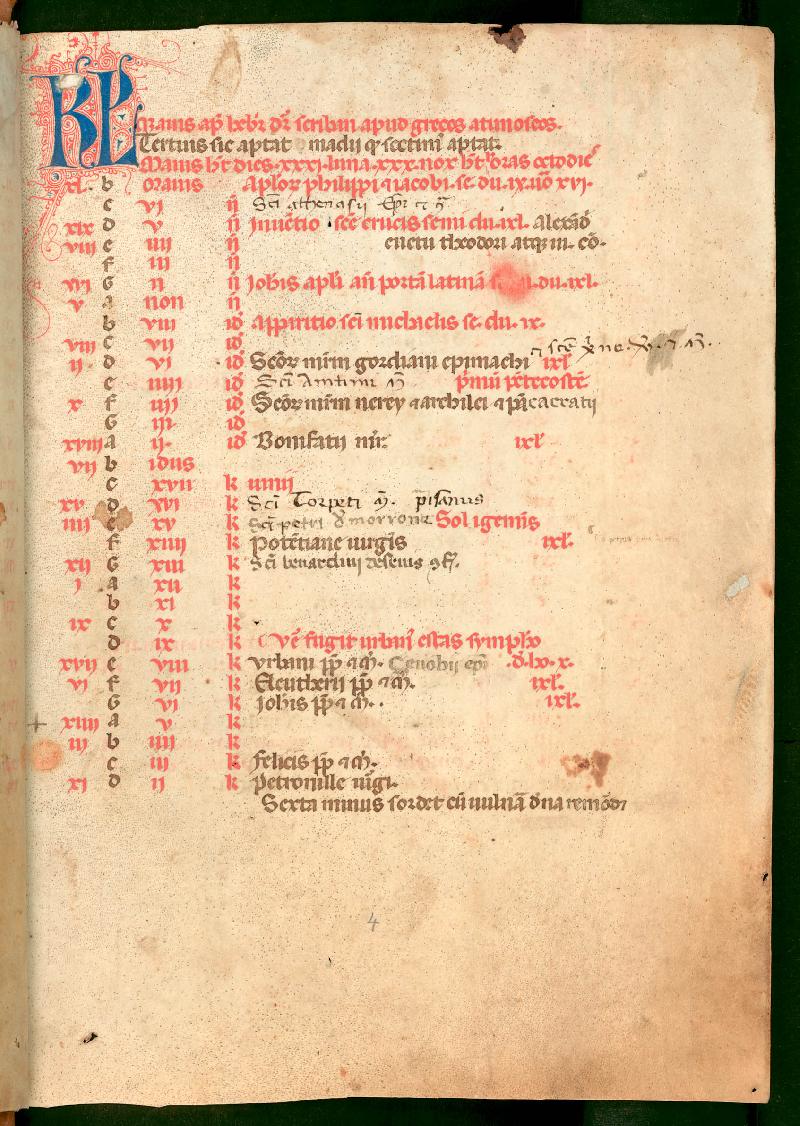 KL
Maius apd hebr dr scribin apud grecos atimoseos.
Tertius sic aptat madii qr sectim aptat.
Maius ht dies. xxxi. luna. xxx. nox ht horas octo die
xi. b maius Aplor philippi 7 iacobi. se. du. ix. uo xvi.
c vi ñ Sci athenasii Epi et
xix d v ñ Inuetio sce crucis semi du. ixl. alexad
viii e iiii ñ euetii theodori atqz m. co.
f iii ñ
xvi G ii ñ Johis apli añ porta latina du. ixl.
v a non ñ
b viii id Appiritio sci michaelis se. du. ix.
viii c vii id
ii. d vi id Scor mrm gordiani epimachi ixl
e iiii id Sci Antimi m primu petecoste
x f iiii id Scor mrm nerey 7 archilei 7 pacratii
G iii. id
xviii a ii. id Bonifatii mr. ixl
vii b idus
c xvii k iunii
xv d xvi k Sci Torpeti m. pisanus
iiii e xv k Sci petri d morrone Sol i gemis
f xiiii k Potetiane uirgis ixl.
xii G xiii k Sci bernardini desenis 9f.
i a xii k
b xi k
ix c x k
d ix k Ve fugit urban estas sympho
xvii e viii k Vrbani pp 7 m. Cenobii epi d. lx. x.
vi f vii k Eleutherii pp 7 m. ixl.
G vi k Johis pp 7 m. ixl.
xiiii a v k
iii b iiii k
c iii k felicis pp 7 m.
xi d ii k Petronille uirgi.
Sexta minus sordet cu uulna dna remodr
4